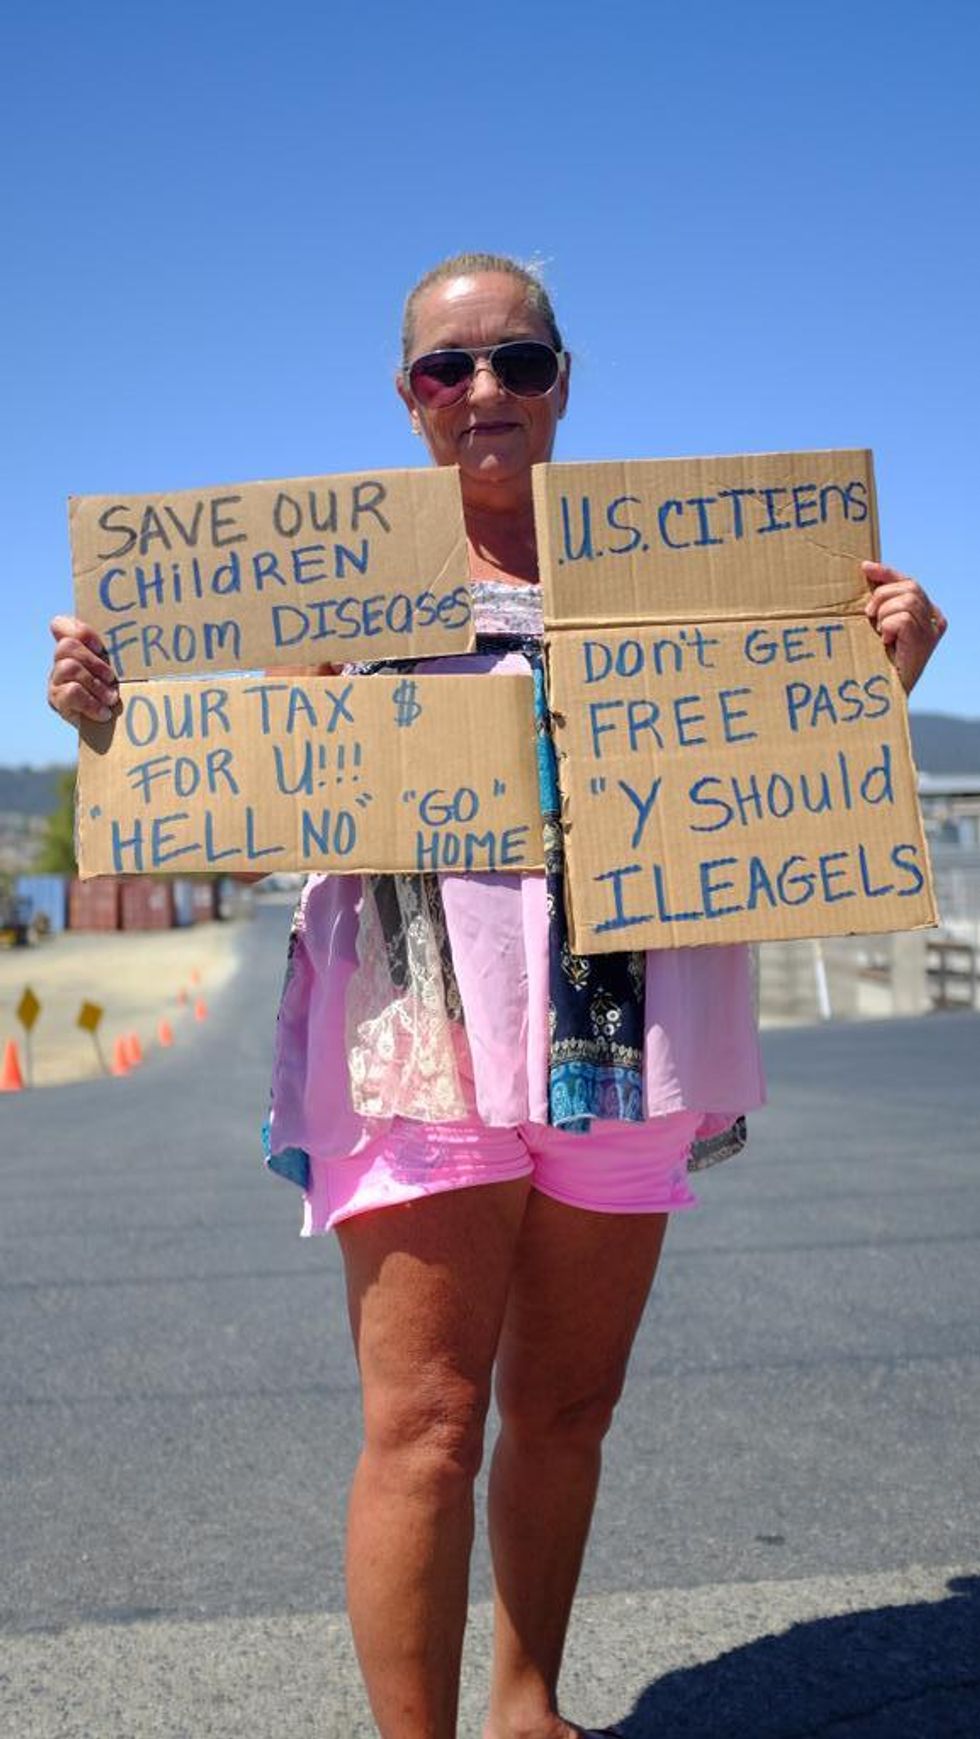 SAVE OUR
CHildREN
FROM DISEASES
OUR TAX $
FOR U!!!
"HELL NO" "GO"
HOME
U.S. CITIENS
DON't GET
FREE PASS
"Y SHOUld
ILEAGELS